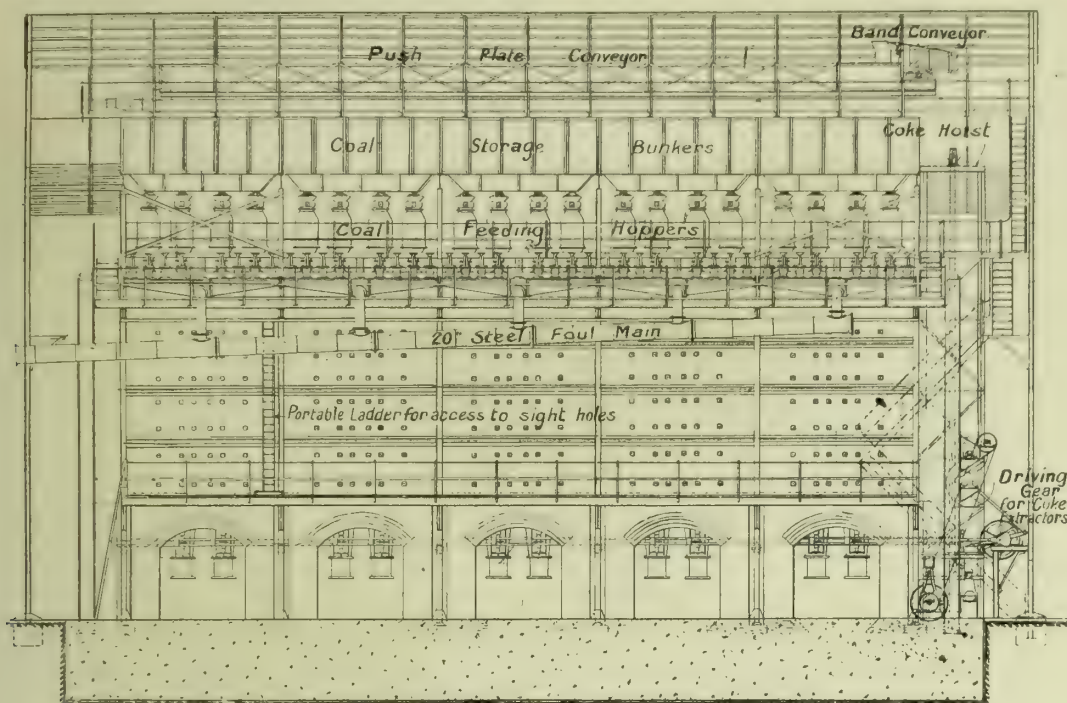 Push Plate Conveyor
Band Conveyor
Coke Hoist
Coal Storage Bunkers
Coal Feeding Hoppers
20" Steel Foul Main
Portable Ladder for access to sight holes
Driving
Gear
for Coke
Extractors